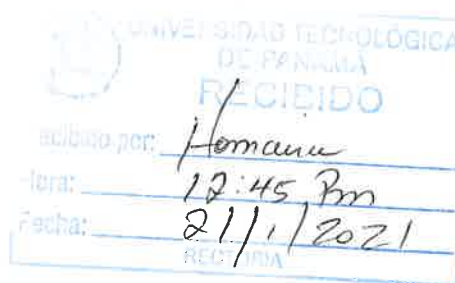 UNIVERSIDAD TECNOLÓGICA
DE PANAMÁ
RECIBIDO
Recibido por:
Hora: 12:45 Pm
Fecha: 21/1/2021
RECTORIA